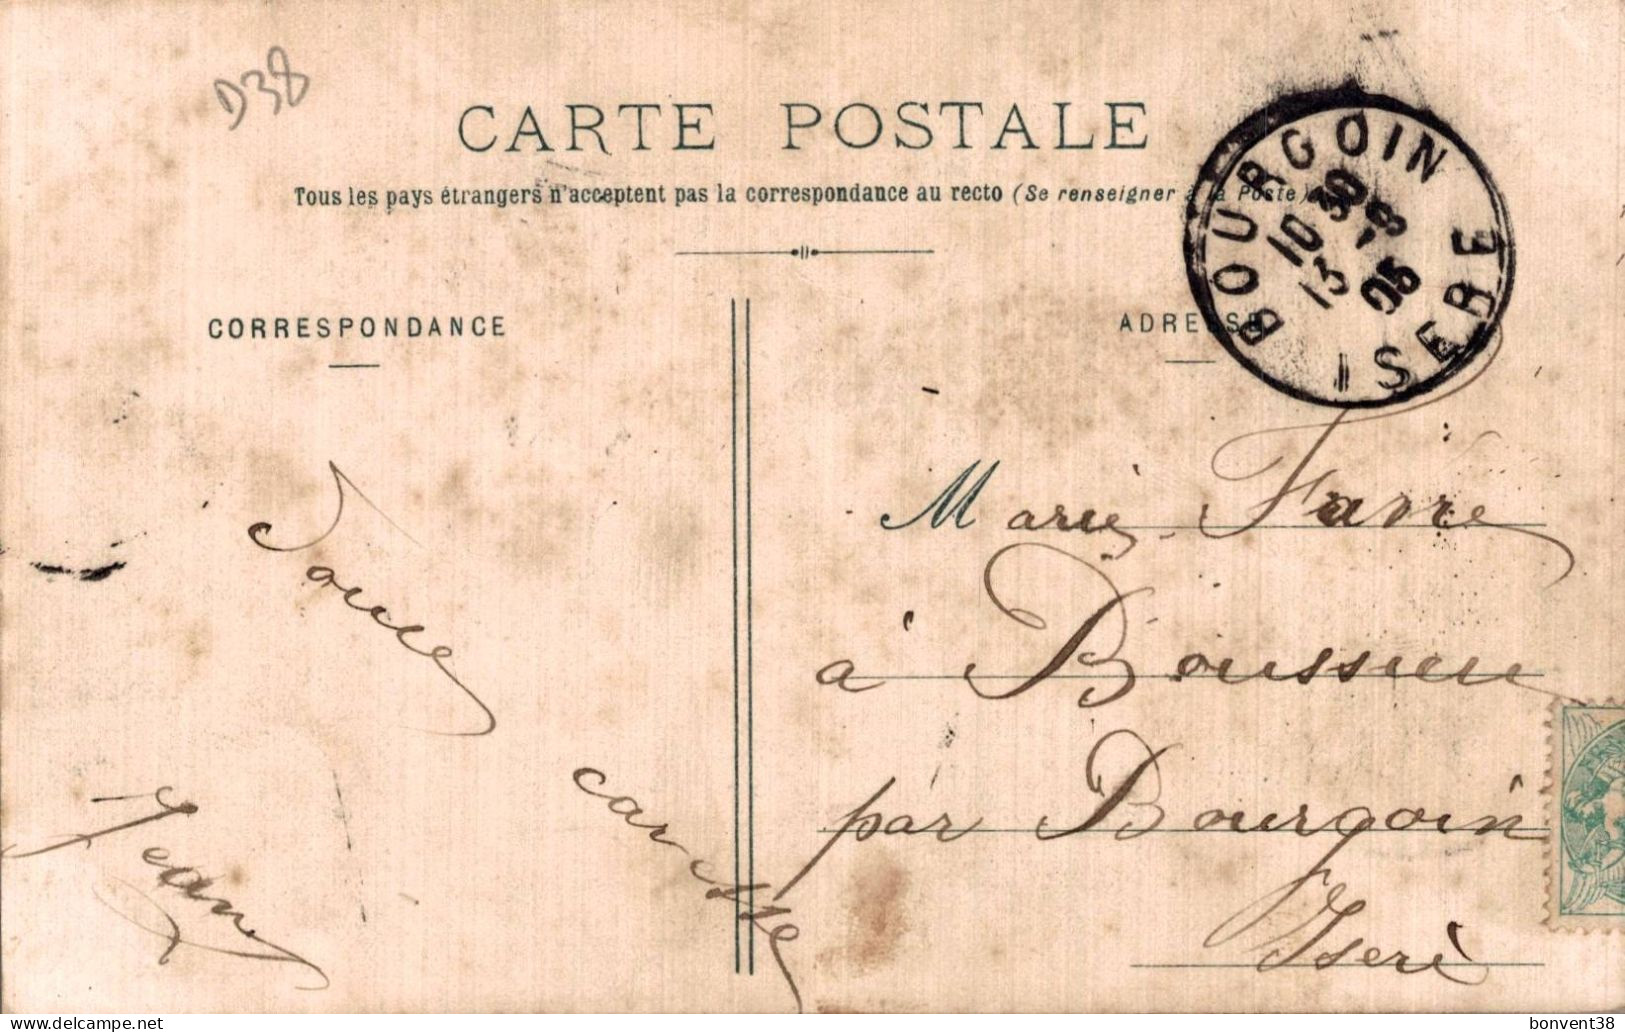 D38
CARTE POSTALE
Tous les pays étrangers n'acceptent pas la correspondance au recto (Se renseigner à la Poste)
BOURGOIN
10 30
13 - 8
05
ISERE
CORRESPONDANCE
ADRESSE
Marie Favre
à Boussieu
par Bourgoin
Isère
caresse
Jean
delcampe.net
bonvent38